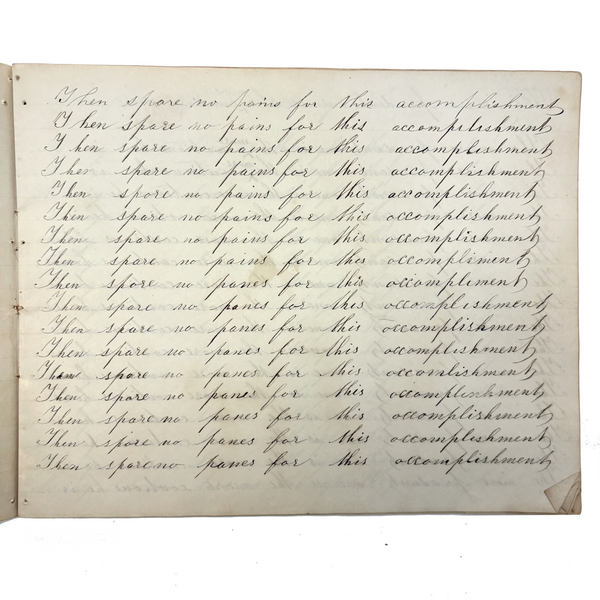 Then spare no pains for this accomplishment
Then spare no pains for this accompilishment
Then spare no pains for this accomplishment
Then spare no pains for this accomplishment
Then spore no pains for this accomplishment
Then spare no pains for this occomplishment
Then spare no pains for this occomplishment
Then spare no pains for this occompliment
Then spore no panes for this occompliment
Then spare no panes for this occomplishment
Then spare no panes for this occomplishment
Then spare no panes for this occomplishment
Then spare no panes for this
Then spare no panes for this occomplishment
Then spare no panes for this occomplishment
Then spare no panes for this occomplishment
Then spare no panes for this occomplishment